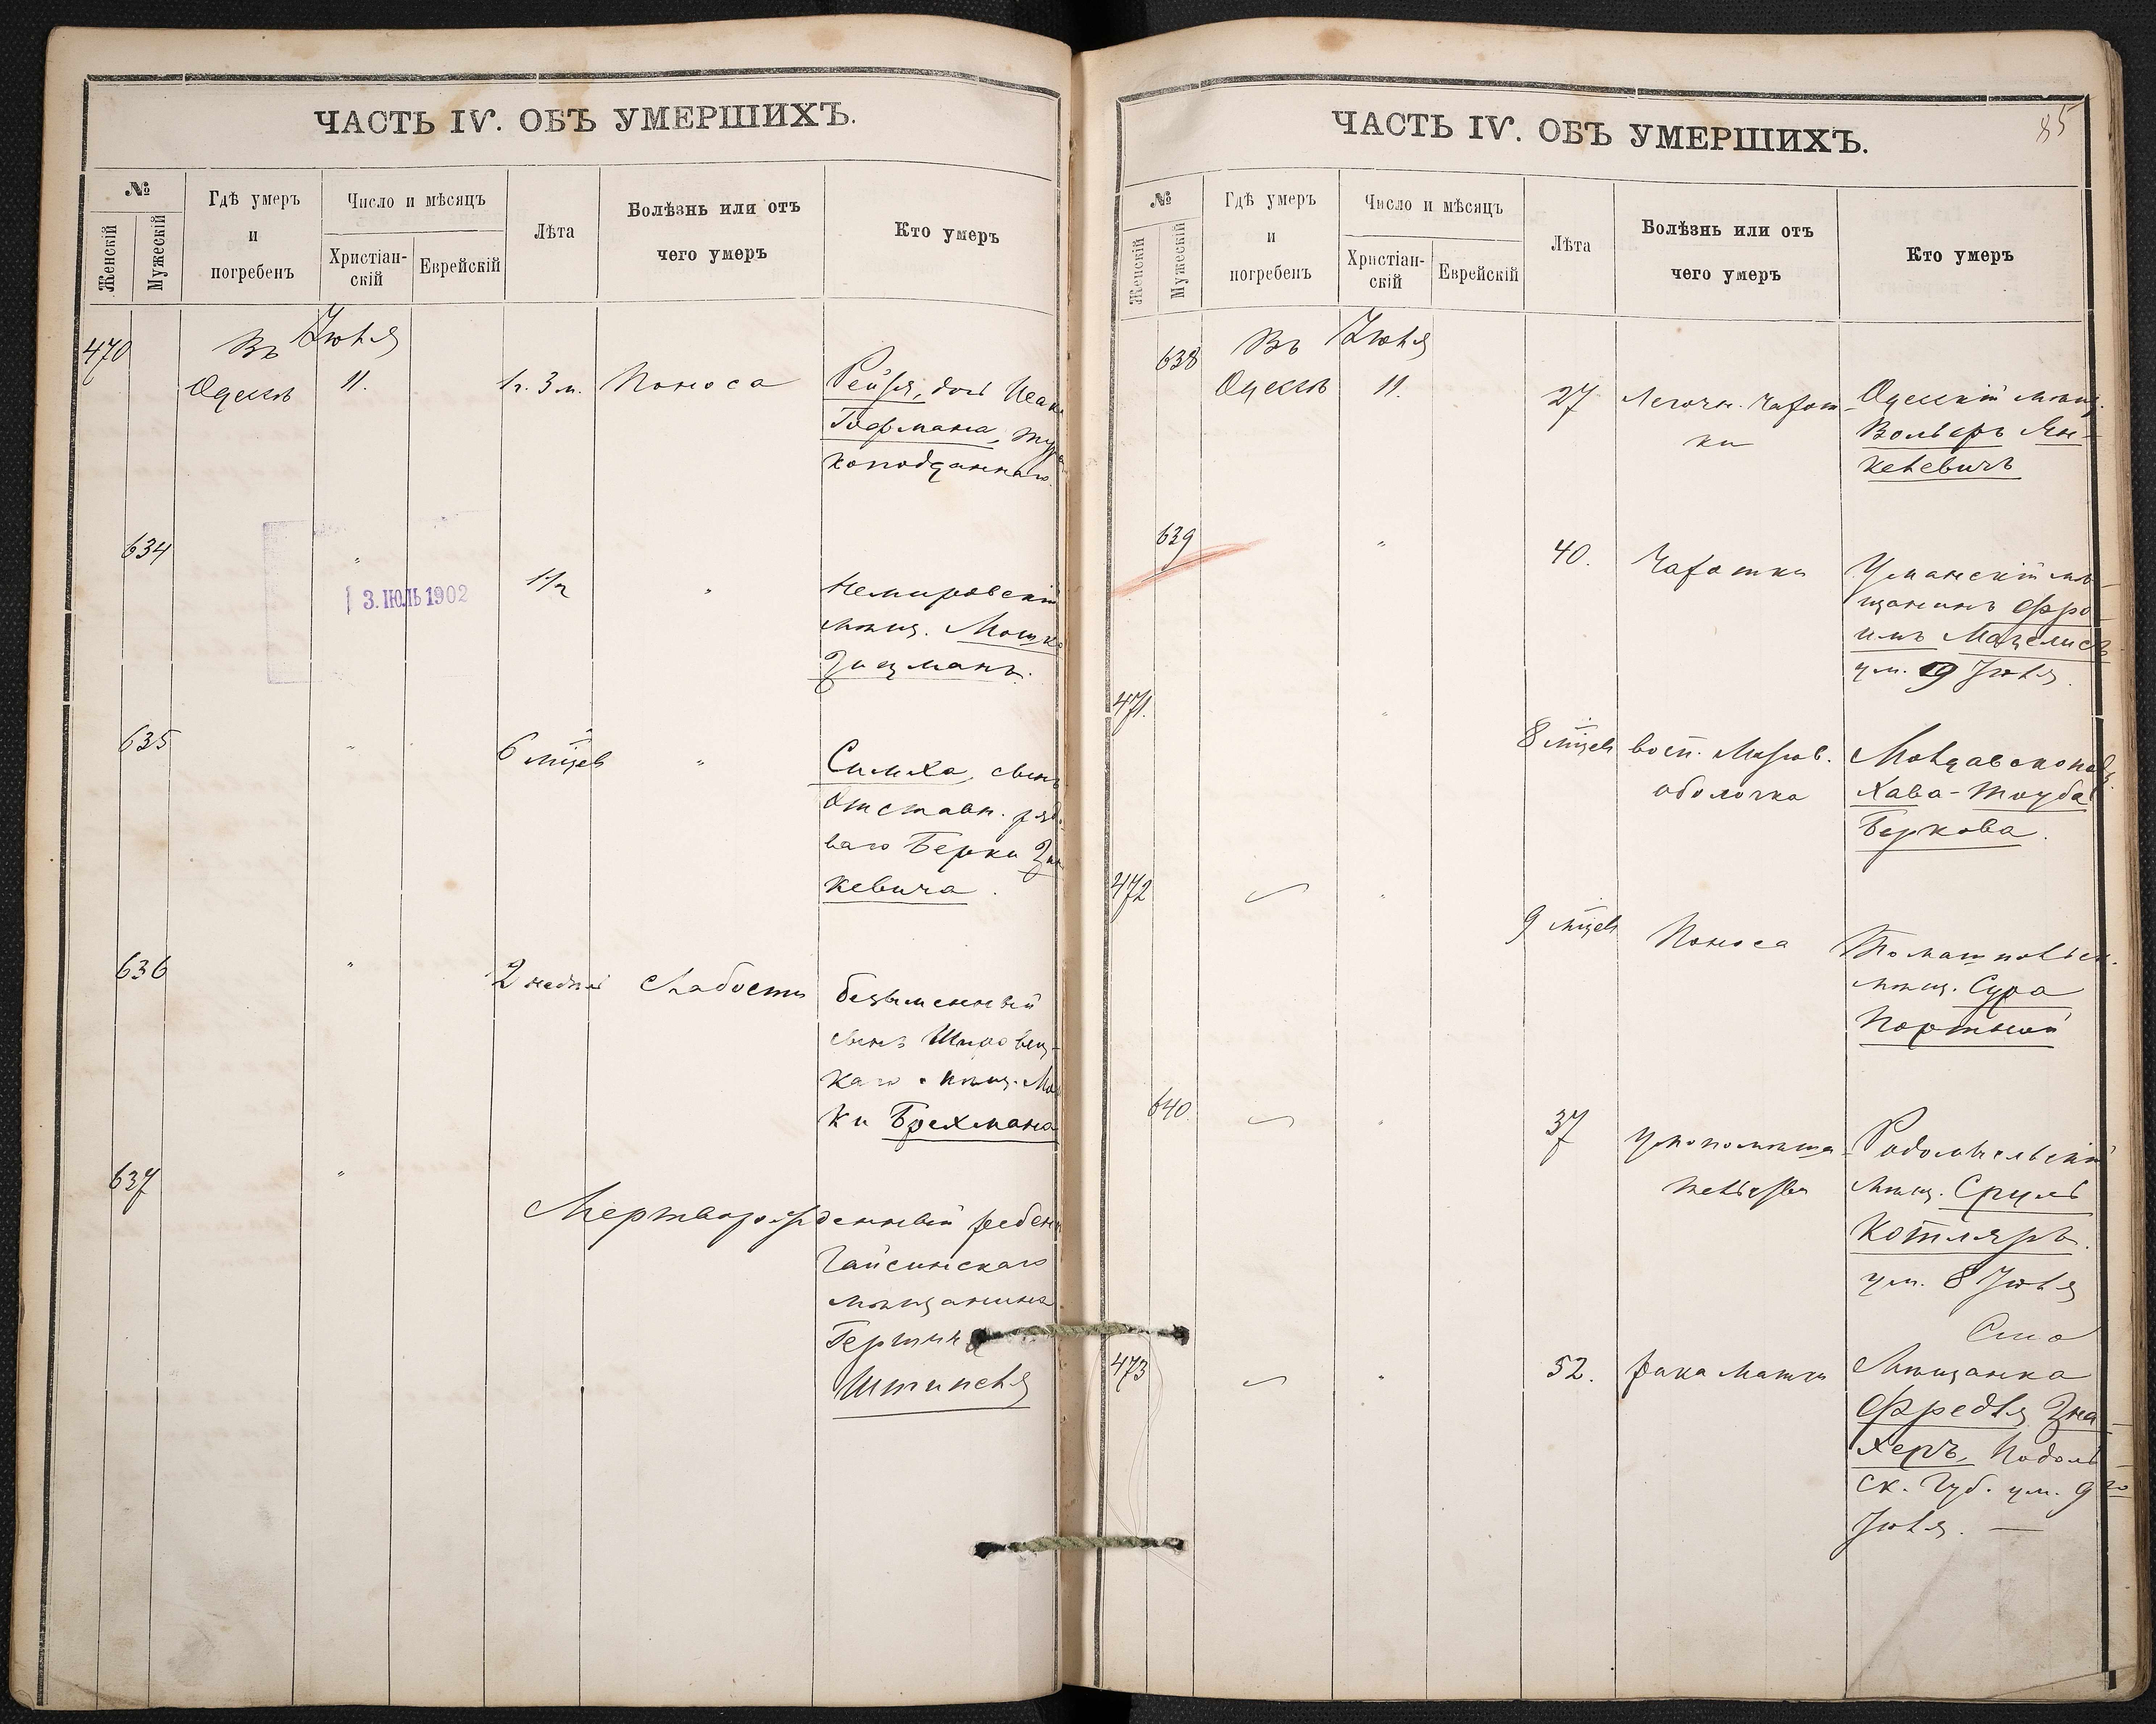 ЧАСТЬ IV. ОБЪ УМЕРШИХЪ.
№
Женскій
Мужескій
Гдѣ умеръ
и
погребенъ
Число и мѣсяцъ
Христіан-
скій
Еврейскій
Лѣта
Болѣзнь или отъ
чего умеръ
Кто умеръ
470
Въ Іюля
Одессѣ 11. 1 г. 3 м. Поноса Рейзя, дочь Исаака
Гофмана, тур
коподданнаго.
634 " 1 1/2 " Немировскій
3. ІЮЛЬ 1902
мѣщ. Мошко
Зицманъ.
635 " 6 мцевъ " Симха, сынъ
отставн. рядо
ваго Берки
кевича.
636 " 2 недѣли Слабости безъименный
сынъ
каго мѣщ.
ки Брехмана
637 "
Мертворожденный ребенокъ
Гайсинскаго
мѣщанина
Герша
ЧАСТЬ IV. ОБЪ УМЕРШИХЪ.
85
№
Женскій
Мужескій
Гдѣ умеръ
и
погребенъ
Число и мѣсяцъ
Христіан-
скій
Еврейскій
Лѣта
Болѣзнь или отъ
чего умеръ
Кто умеръ
638 Въ Іюля
Одессѣ 11. 27 Легочн. чахот- Одесскій мѣщ.
ки Вольфъ Ян-
келевичъ
639 " 40. Чахотки Уманскій мѣ-
щанинъ Фро
имъ Мацелисъ
ум. 9 Іюля.
471. " 8 мцевъ восп. мозгов. Молдавскопод.
оболочка Хава-Тауба
Беркова.
472 " 9 мцевъ Поноса Томашпольск.
мѣщ. Сура
Портной
640. " 37 умопомѣша- Радомысльскій
тельства мѣщ. Сруль
Котляръ.
ум. 8 Іюля
473 " 52. рака матки Мѣщанка
Фредля Зна-
херъ, Подоль-
ск. губ. ум. 9го
Іюля. —